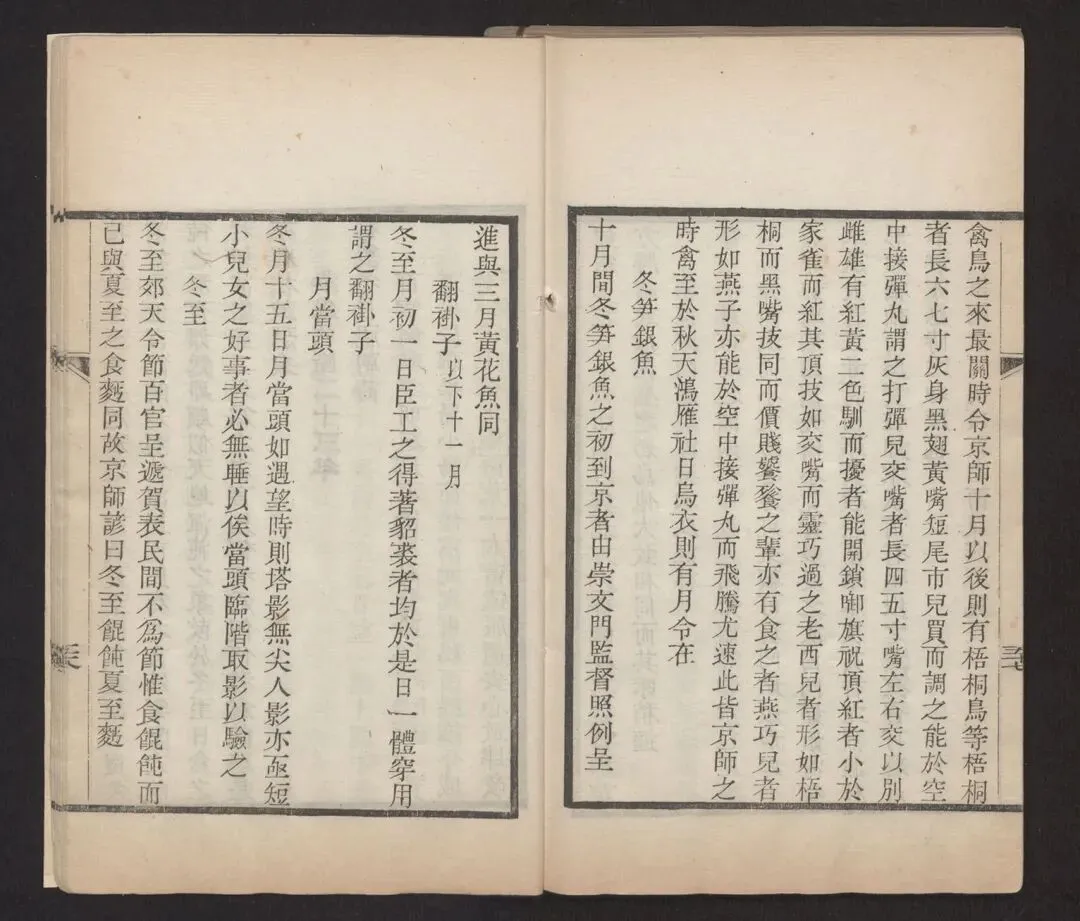 禽鳥之來最關時令京師十月以後則有梧桐鳥等梧桐
者長六七寸灰身黑翅黃嘴短尾市兒買而調之能於空
中接彈丸謂之打彈兒交嘴者長四五寸嘴左右交以別
雌雄有紅黃二色馴而擾者能開鎖啣旗祝頂紅者小於
家雀而紅其頂技如交嘴而靈巧過之老西兒者形如梧
桐而黑嘴技同而價賤饕餮之輩亦有食之者燕巧兒者
形如燕子亦能於空中接彈丸而飛騰尤速此皆京師之
時禽至於秋天鴻雁社日烏衣則有月令在
冬笋銀魚
十月間冬笋銀魚之初到京者由崇文門監督照例呈
進與三月黃花魚同
翻褂子以下十一月
冬至月初一日臣工之得著貂裘者均於是日一體穿用
謂之翻褂子
月當頭
冬月十五日月當頭如遇望時則塔影無尖人影亦亟短
小兒女之好事者必無睡以俟當頭臨階取影以驗之
冬至
冬至郊天令節百官呈遞賀表民間不爲節惟食餛飩而
已與夏至之食麪同故京師諺曰冬至餛飩夏至麪